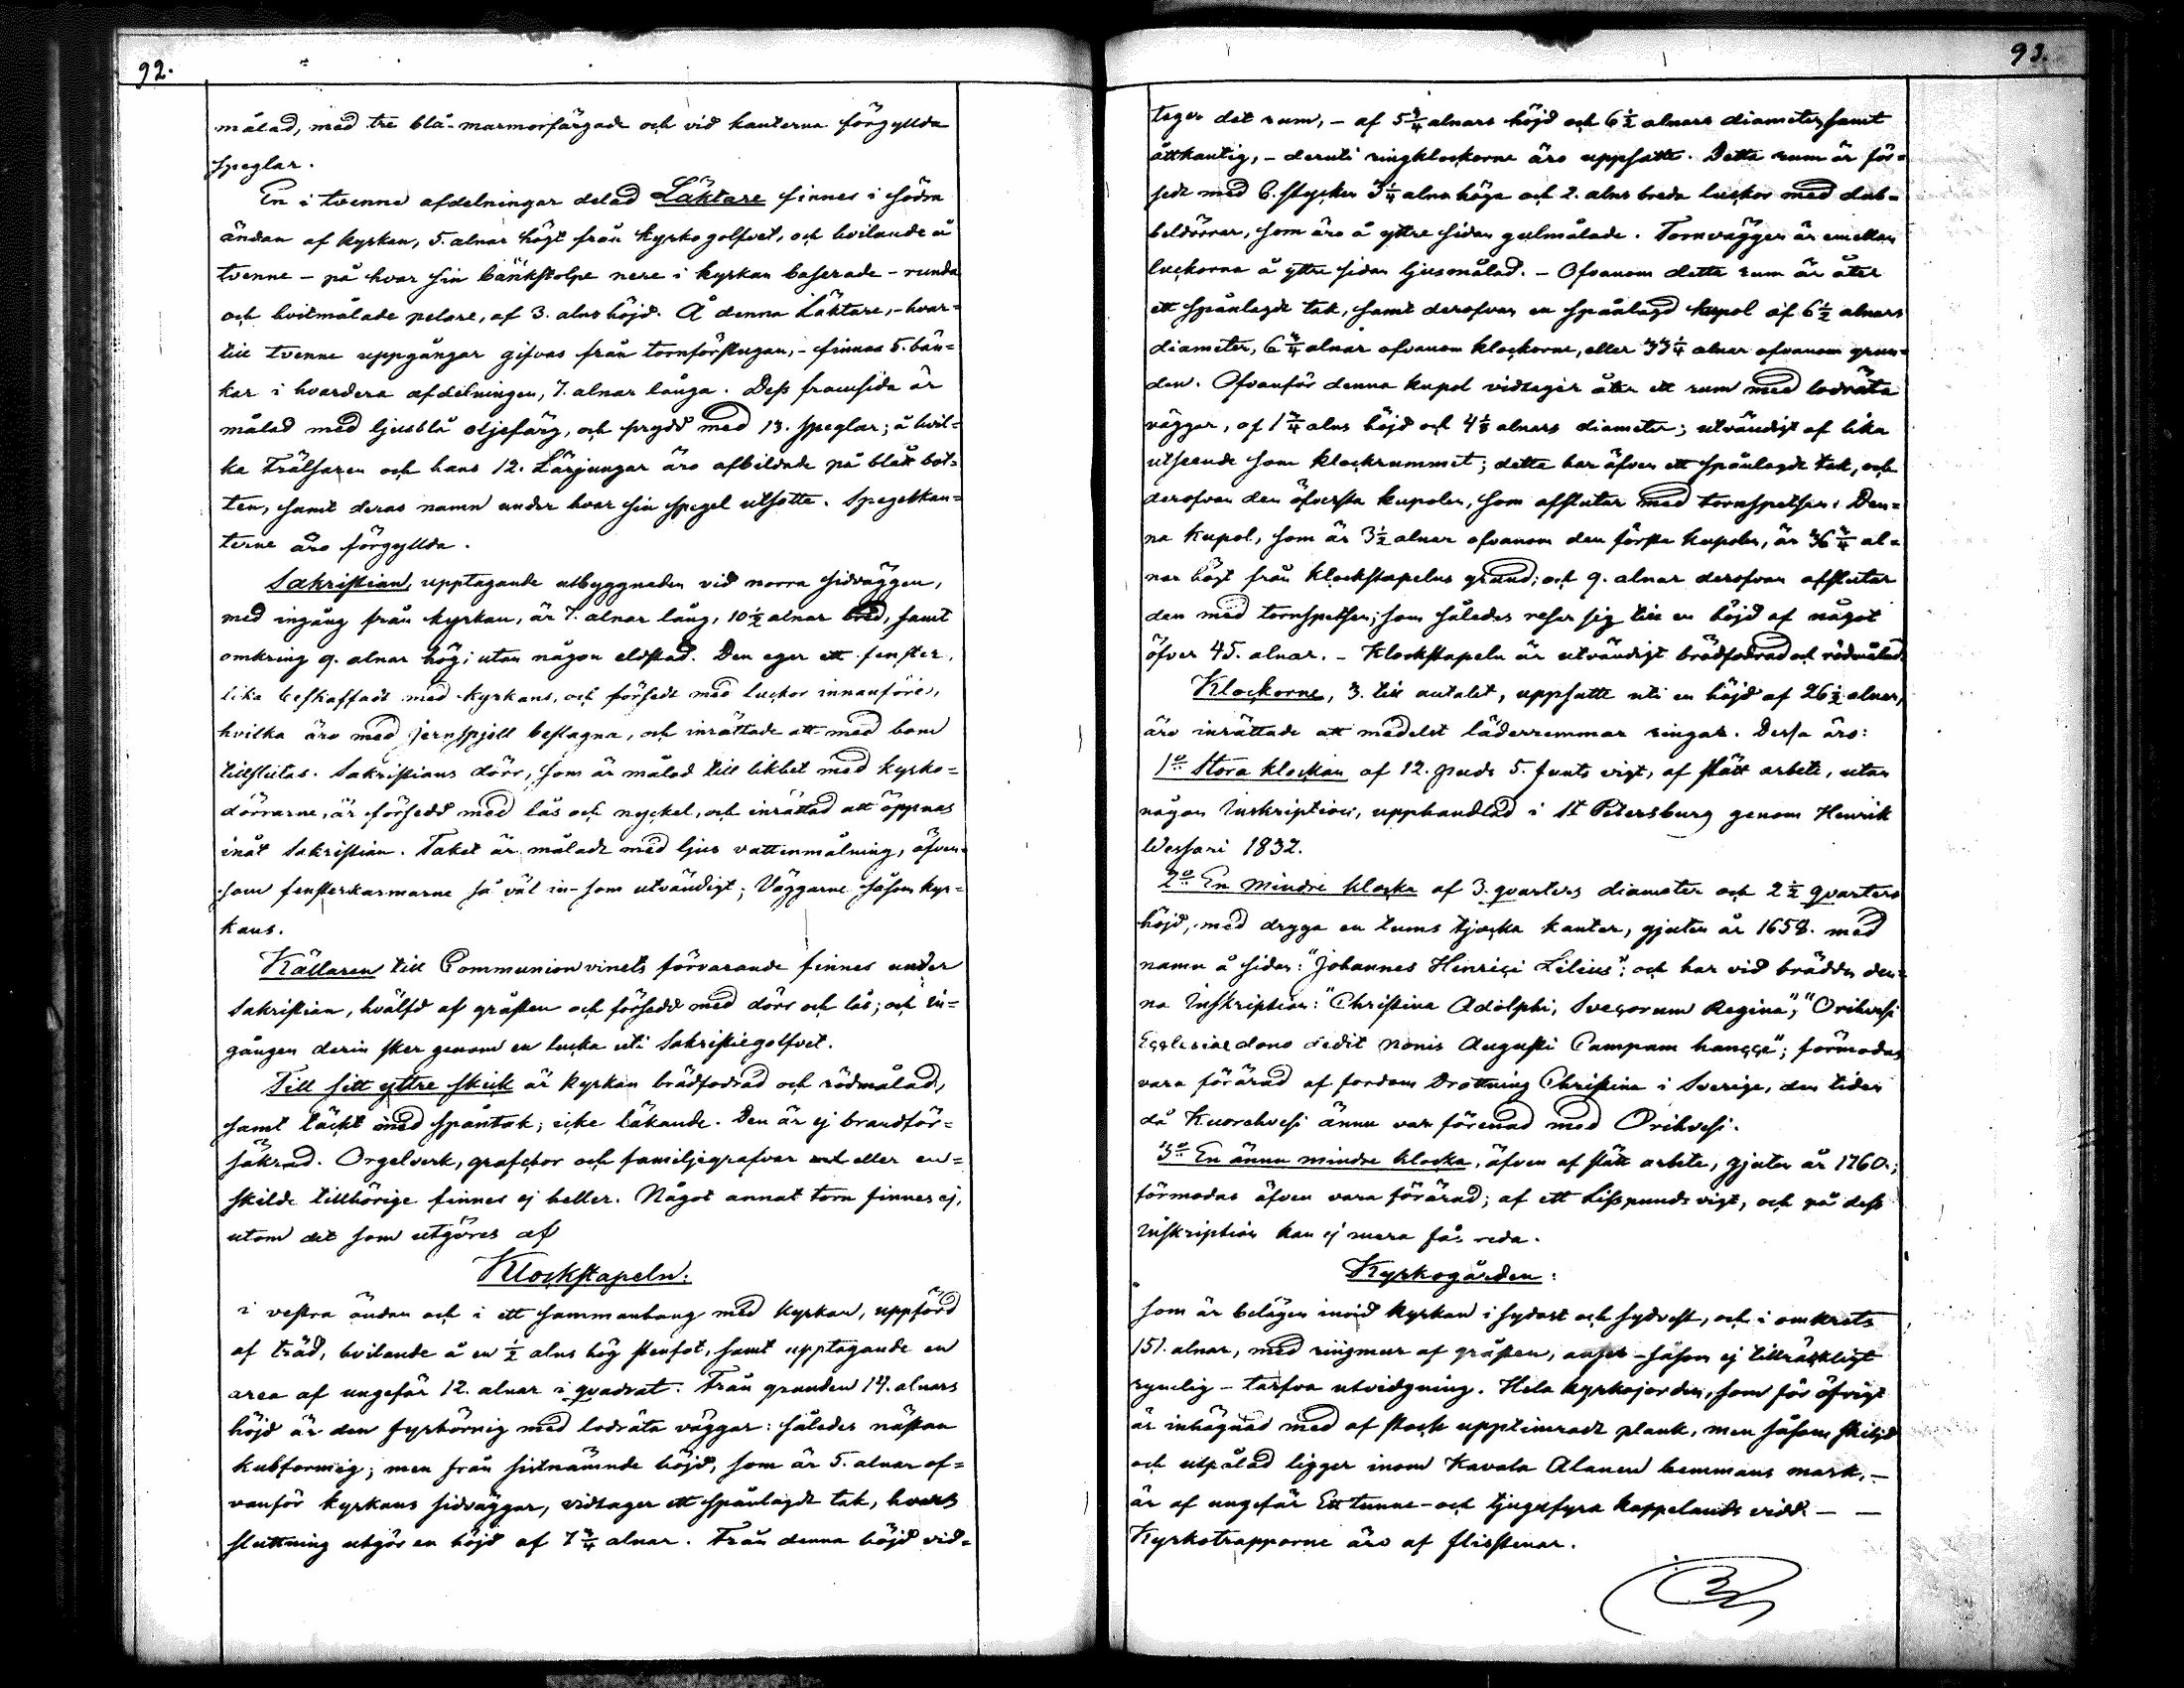 92.
målad, med tre blå-marmorfärgade och vid kanterna förgyllda
speglar.
En i tvenne afdelningar delad Läktare finnes i södra
ändan af kyrkan, 5. alnar högt från kyrkogolfvet, och hvilande å
tvenne – på hvar sin bänkstolpe nere i kyrkan baserade – runda
och hvitmålade pelare, af 3. alns höjd. Å denna Läktare, – hvar=
till tvenne uppgångar gifvas från tornförstugan, – finnas 5. bän=
kar i hvardera afdelningen, 7. alnar långa. Dess framsida är
målad med ljusblå oljefärg, och prydd med 13. speglar; å hvil=
ka Frälsaren och hans 12. Lärjungar äro afbildade på blått bot=
ten, samt deras namn under hvar sin spegel utsatte. Spegelkan=
terne äro förgyllda.
Sakristian, upptagande utbyggnaden vid norra sidväggen,
med ingång från kyrkan, är 7. alnar lång, 10½ alnar bred, samt
omkring 9. alnar hög; utan någon eldstad. Den eger ett fenster,
lika beskaffadt med kyrkans, och försedt med luckor innanföre,
hvilka äro med jernspjell beslagna, och inrättade att med bom
tillslutas. Sakristians dörr, som är målad till likhet med kyrko=
dörrarne, är försedd med lås och nyckel, och inrättad att öppnas
inåt Sakristian. Taket är måladt med ljus vattenmålning, äfven=
som fensterkarmarne så väl in- som utvändigt; Väggarne såsom kyr=
kans.
Källaren till Communionvinets förvarande finnes under
Sakristian, hvälfd af gråsten och försedd med dörr och lås; och in=
gången derin sker genom en lucka uti Sakristiegolfvet.
Till sitt yttre skick är kyrkan brädfodrad och rödmålad,
samt täckt med spåntak; icke läkande. Den är ej brandför=
säkrad. Orgelverk, grafchor och familjegrafvar eller en=
skilde tillhörige finnes ej heller. Något annat torn finnes ej,
utom det som utgöres af
Klockstapeln:
i vestra ändan och i ett sammanhang med kyrkan, uppförd
af träd, hvilande å en ½ alns hög stenfot, samt upptagande en
area af ungefär 12. alnar i qvadrat. Från grunden 14. alnars
höjd är den fyrhörnig med lodräta väggar: således nästan
kubformig; men från sistnämnde höjd, som är 5. alnar of=
vanför kyrkans sidväggar, vidtager ett spånlagdt tak, hvars
sluttning utgör en höjd af 7¾ alnar. Från denna höjd vid=
93.
tager det rum, – af 5¾ alnars höjd och 6½ alnars diameter, samt
åttkantig, – deruti ringklockorne äro uppsatte. Detta rum är för=
sedt med 6. stycken 3¼ alns höga och 2. alns breda luckor med dub=
beldörrar, som äro å yttre sidan gulmålade. Tornväggen är emellan
luckorna å yttre sidan ljusmålad. – Ofvanom detta rum är åter
ett spånlagdt tak, samt derofvan en spånlagd kupol af 6½ alnars
diameter, 6¾ alnar ofvanom klockorne, eller 33¼ alnar ofvanom grun=
den. Ofvanför denna kupol vidtager åter ett rum med lodräta
väggar, af 1¾ alns höjd och 4⅓ alnars diameter; utvändigt af lika
utseende som klockrummet; detta har äfven ett spånlagdt tak, och
derofvan den öfversta kupolen, som afslutar med tornspetsen. Den=
na kupol, som är 3½ alnar ofvanom den första kupolen, är 36¾ al=
nar högt från klockstapelns grund; och 9. alnar derofvan afslutar
den med tornspetsen; som således reser sig till en höjd af något
öfver 45. alnar. – Klockstapeln är utvändigt brädfodrad och rödmålad.
Klockorne, 3. till antalet, uppsatte uti en höjd af 26½ alnar,
äro inrättade att medelst läderremmar ringas. Dessa äro:
1º Stora klockan af 12. puds 5. funts vigt, af slätt arbete, utan
någon Inskription, upphandlad i St Petersburg genom Henrik
Wessari 1832.
2º En mindre klocka af 3. qvarters diameter och 2½ qvarters
höjd, med dryga en tums tjocka kanter, gjuten år 1658. med
namn å sidan: "Johannes Henrici Lilius"; och har vid brädden den=
na Inskription: "Christina Adolphi, Svecorum Regina", "Orihvesi
Ecclesiae dono dedit nonis Augusti Campam hancce"; förmodas
vara förärad af fordom Drottning Christina i Sverige, den tiden
då Kuorehvesi ännu var förenad med Orihvesi.
3º En ännu mindre klocka, äfven af slätt arbete, gjuten år 1760.;
förmodas äfven vara förärad; af ett Lisspunds vigt, och på dess
Inskription kan ej mera fås reda.
Kyrkogården:
som är belägen invid kyrkan i sydost och sydvest, och i omkrets
151. alnar, med ringmur af gråsten, anses – såsom ej tillräckligt
rymlig – tarfva utvidgning. Hela kyrkojorden, som för öfrigt
är inhägnad med af stock upptimradt plank, men såsom skiljd
och utpålad ligger inom Kavala Alanen hemmans mark, –
är af ungefär Ett tunne- och tjugufyra kappelands vidd – –
Kyrkotrapporne äro af flisstenar.